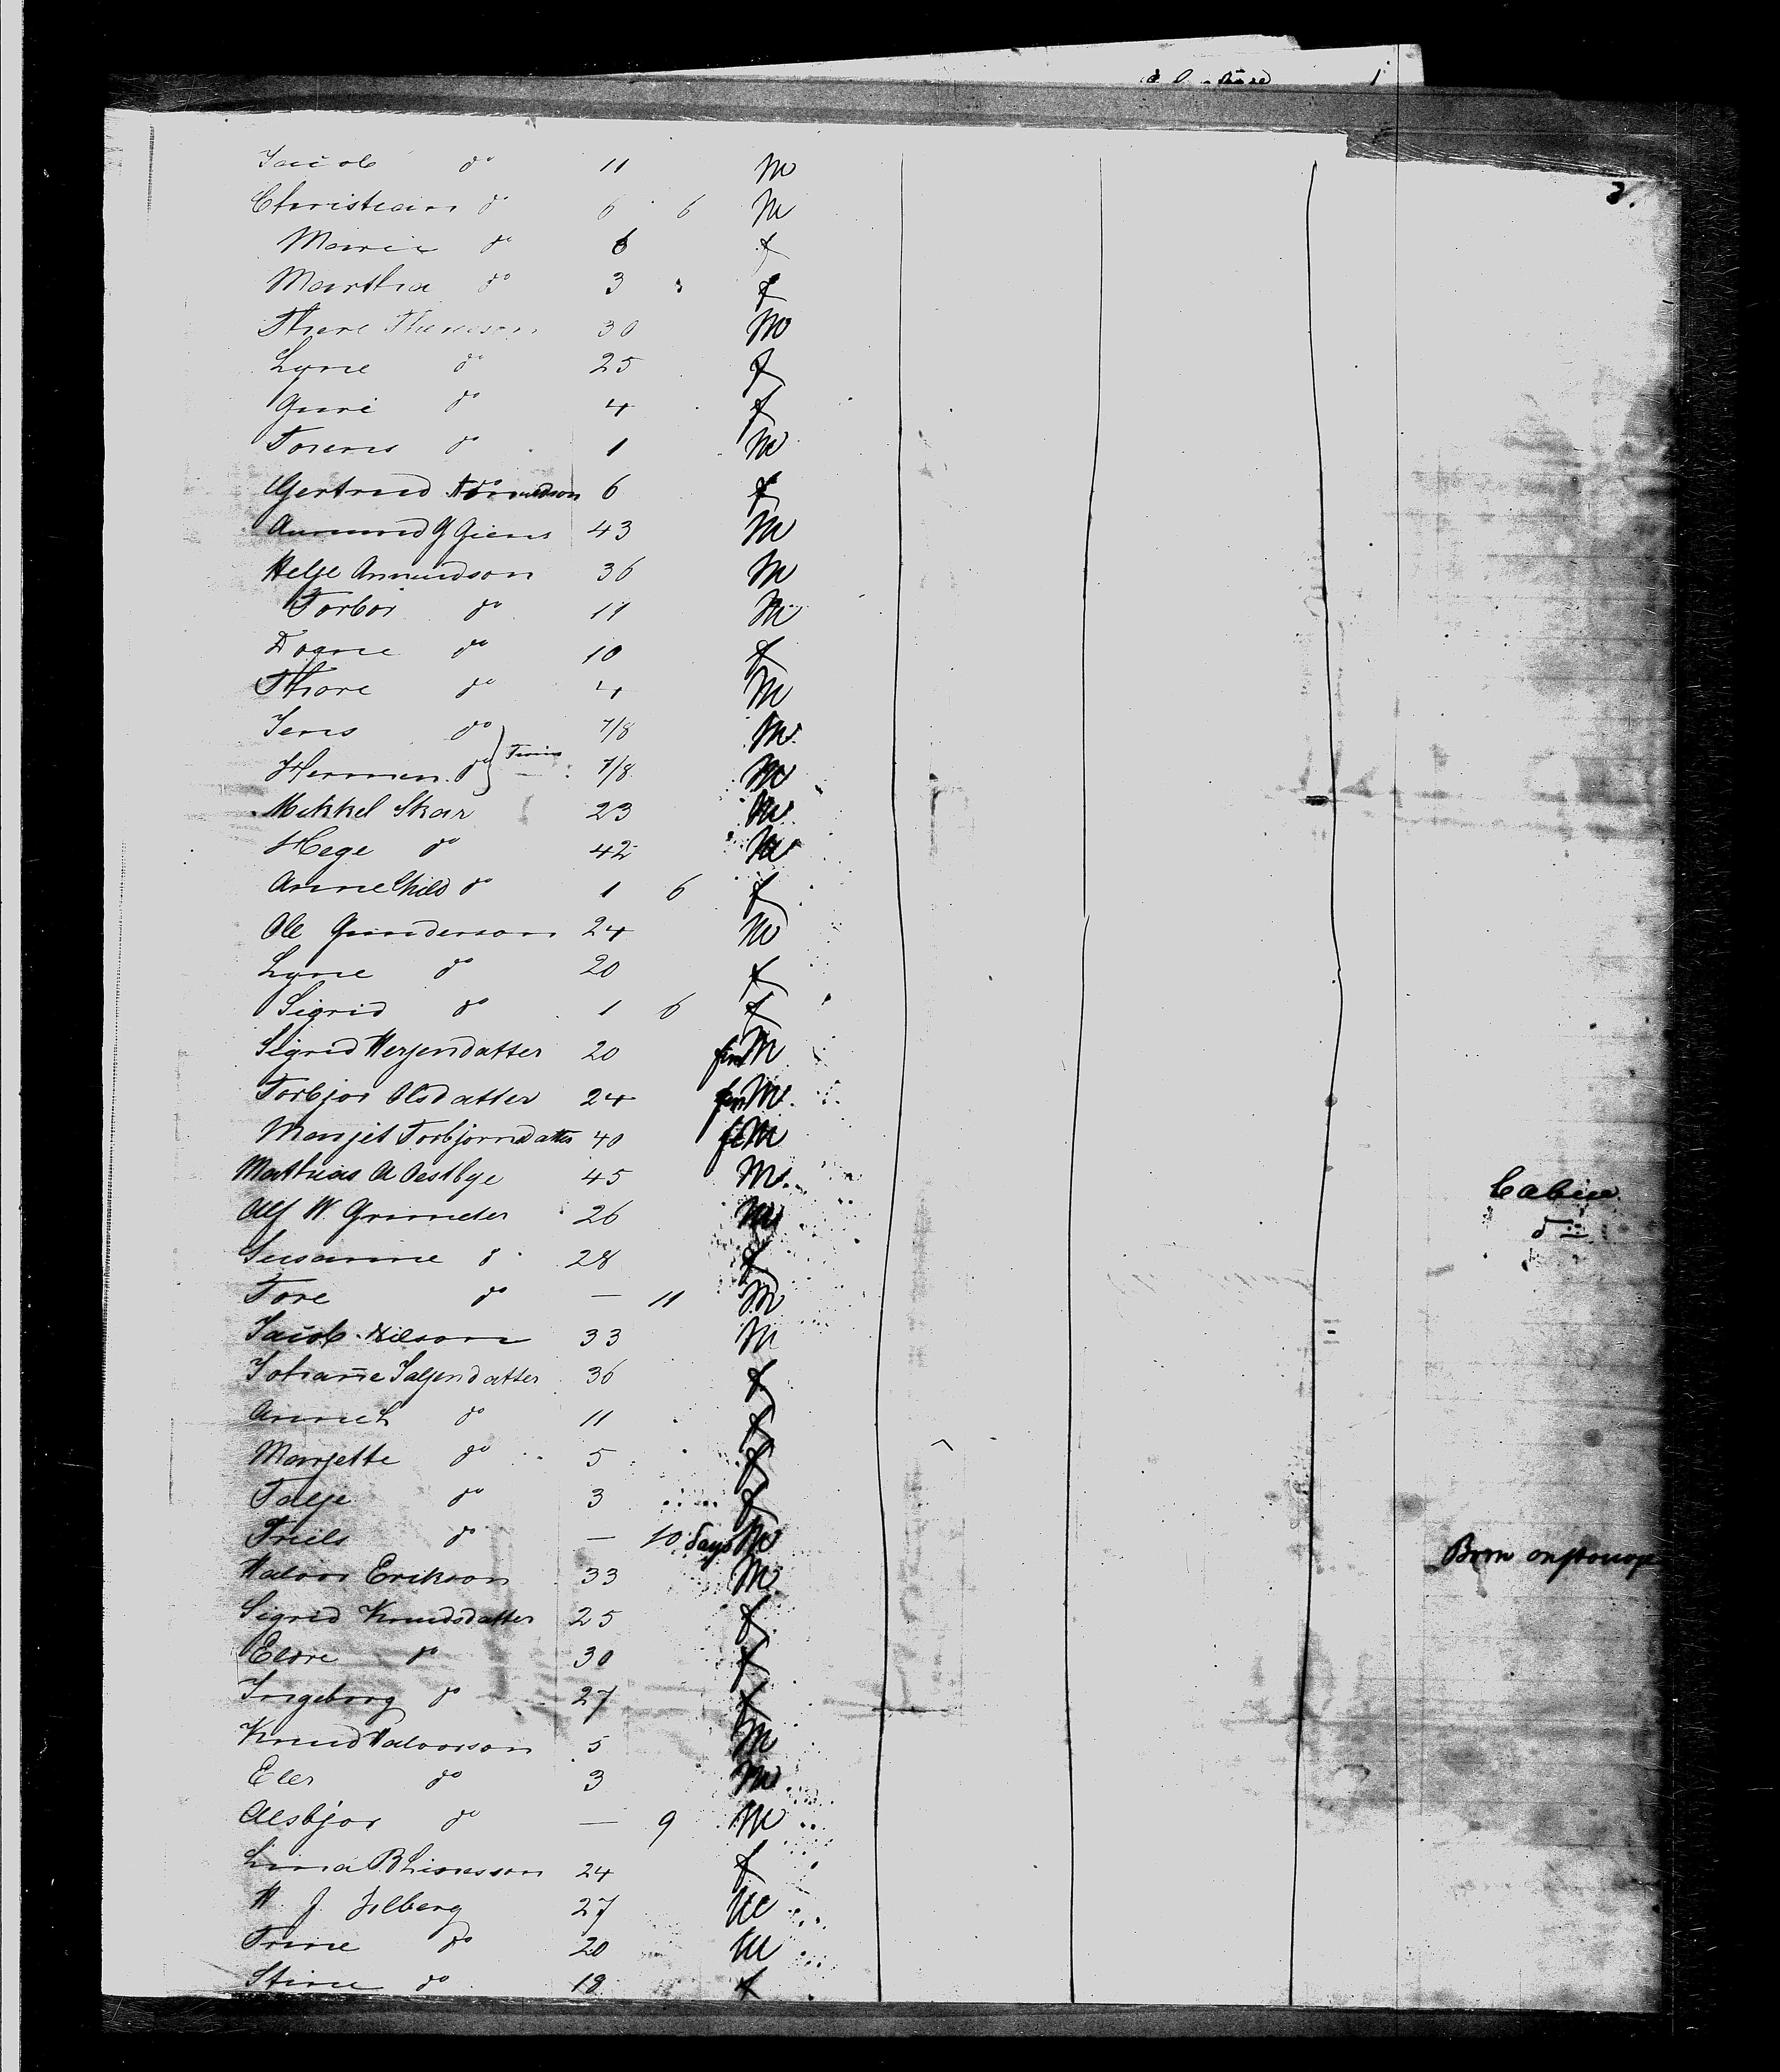 2.
Jacob do 11 M
Christian do 6 6 M
Marie do 6 f
Martha do 3 f
Thore 30 M
Lyne do 25 f
Guri do 4 f
Torens do 1 M
Gertrud 6 f
Aumund G Giens 43 M
Helje Anmundson 36 M
Torbor do 11 M
Dogne do 10 f
Thore do 4 M
Jens do 7/8 M
Hermen do } Twins 7/8 M
Mikkel Skar 23 M
Hege do 42 M
Anne Child do 1 6 f
Ole Gunderson 24 M
Lyne do 20 f
Sigrid do 1 6 f
Sigrid Herjendatter 20 fm M
Torbjor Olsdatter 24 fm M
Margit Torbjornsdatter 40 fe M
Mathias A Oestbye 45 M Cabin
Alf W. Grimeler 26 M do
Susanne do 28 f
Tore do — 11 M
Jacob Nilsson 33 M
Johanne Taljendatter 36 f
Anne L do 11 f
Margette do 5 f
Talje do 3 f
Niels do — 10 days M Born on
Halvor Erikson 33 M
Sigrid Knudsdatter 25 f
Elsre do 30 f
Ingeborg do 27 f
Knud Halvorson 5 M
Eler do 3 M
Alsbjor do — 9 M
Lina B 24 f
H. J. Jilberg 27 M
Trine do 20 M
Stine do 18 f